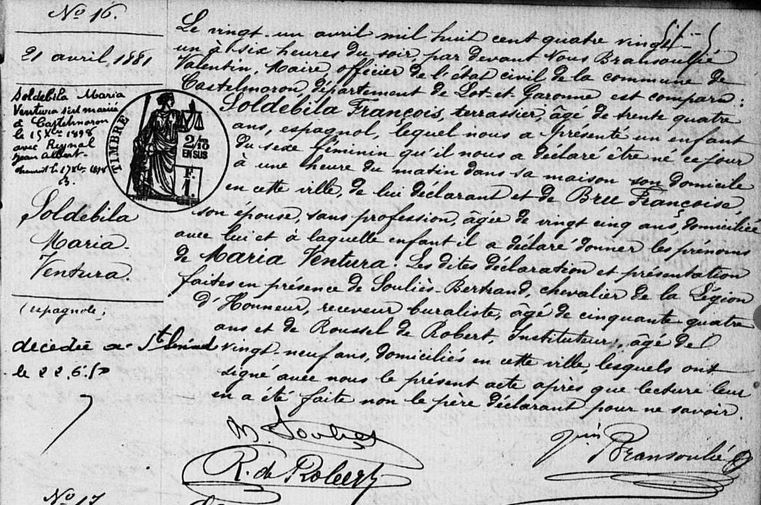 No 16.
21 avril, 1881
Soldebila Maria
Ventura s'est mariée
à Castelmoron
le 15 Xbre 1898
avec Reynal
Jean Albert
TIMBRE
2/10
EN SUS
F.
1.
Soldebila
Maria
Ventura.
(espagnole)
décédée a St
le 22.6.
Le vingt-un avril mil huit cent quatre vingt-
un à six heures du soir, par devant Nous Bransoulié
Valentin, Maire, officier de l'état civil de la commune de
Castelmoron, département de Lot et Garonne est comparu:
Soldebila François, terrassier, âgé de trente quatre
ans, espagnol, lequel nous a présenté un enfant
du sexe féminin qu'il nous a déclaré être né ce jour
à une heure du matin dans sa maison son domicile
en cette ville, de lui déclarant et de Bree Françoise
son épouse, sans profession, âgée de vingt cinq ans, domiciliée
avec lui et à laquelle enfant il a déclaré donner les prénoms
de Maria Ventura. Les dites déclaration et présentation
faites en présence de Souliès-Bertrand, chevalier de la Légion
d'Honneur, receveur buraliste, âgé de cinquante quatre
ans et de Roussel de Robert, Instituteur, âgé de
vingt-neuf ans, domiciliés en cette ville lesquels ont
signé avec nous le présent acte après que lecture leur
en a été faite non le père déclarant pour ne savoir.
B. Souliès
R. de Robert
Bransoulié
No 17